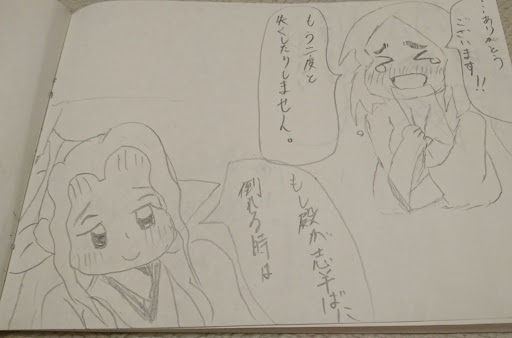 …ありがとう
ございます!!
もう二度と
失くしたりしません。
もし殿が志半ばに
倒れる時は